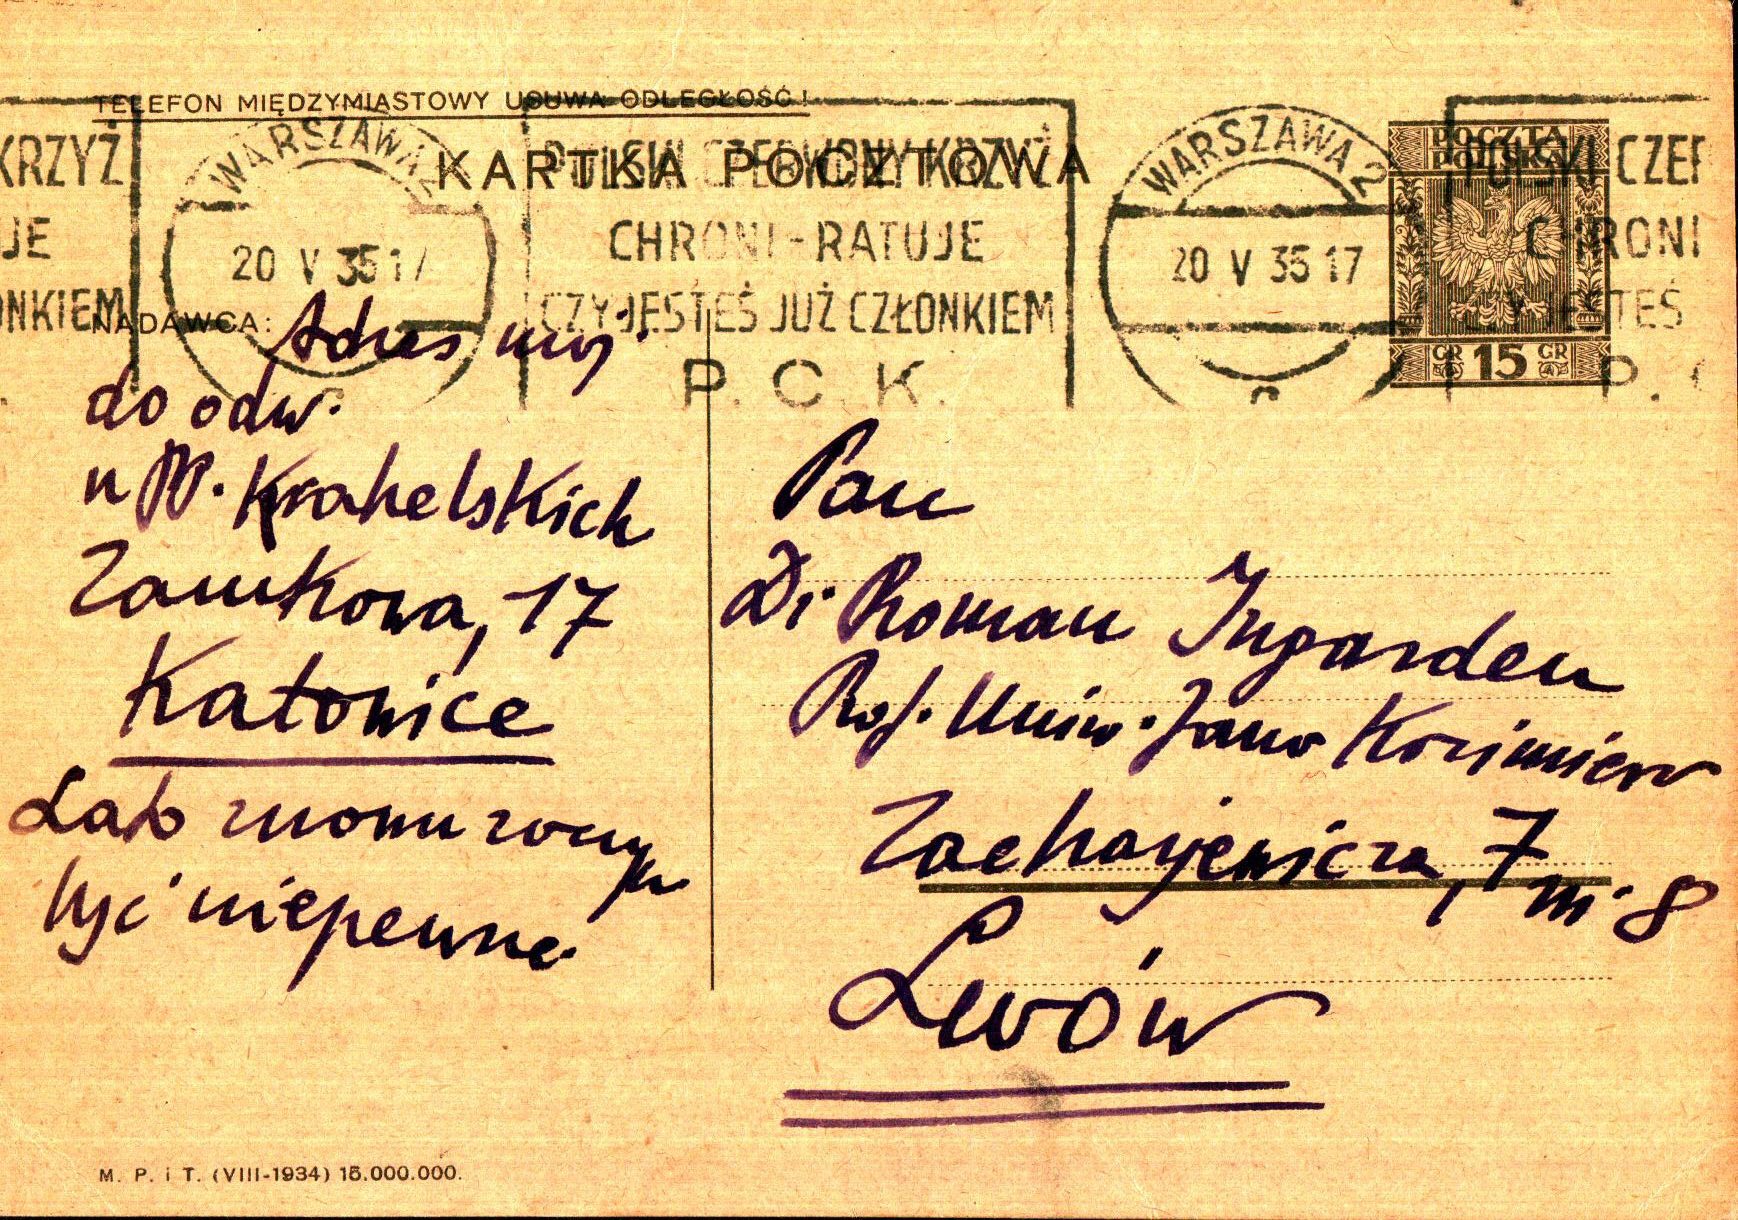 TELEFON MIĘDZYMIASTOWY USUWA ODLEGŁOŚĆ!
KARTKA POCZTOWA
KRZYŻ
JE
ONKIEM
WARSZAWA 2
20 V 35 17
POLSKI CZERWONY KRZYŻ
CHRONI-RATUJE
CZY JESTEŚ JUŻ CZŁONKIEM
P. C. K.
WARSZAWA 2
20 V 35 17
c
POCZTA
POLSKA
GR 15 GR
POLSKI CZER
CHRONI
CZY JESTEŚ
P. C
NADAWCA:
Adres mój
do odw.
u PP. Krahelskich
Zamkowa, 17
Katowice
być niepewne.
Pan
Dr Roman Ingarden
Prof. Uniw. Jana Kazimierza
Zacharjewicza, 7 m. 8
Lwów
M. P. i T. (VIII-1934) 15.000.000.